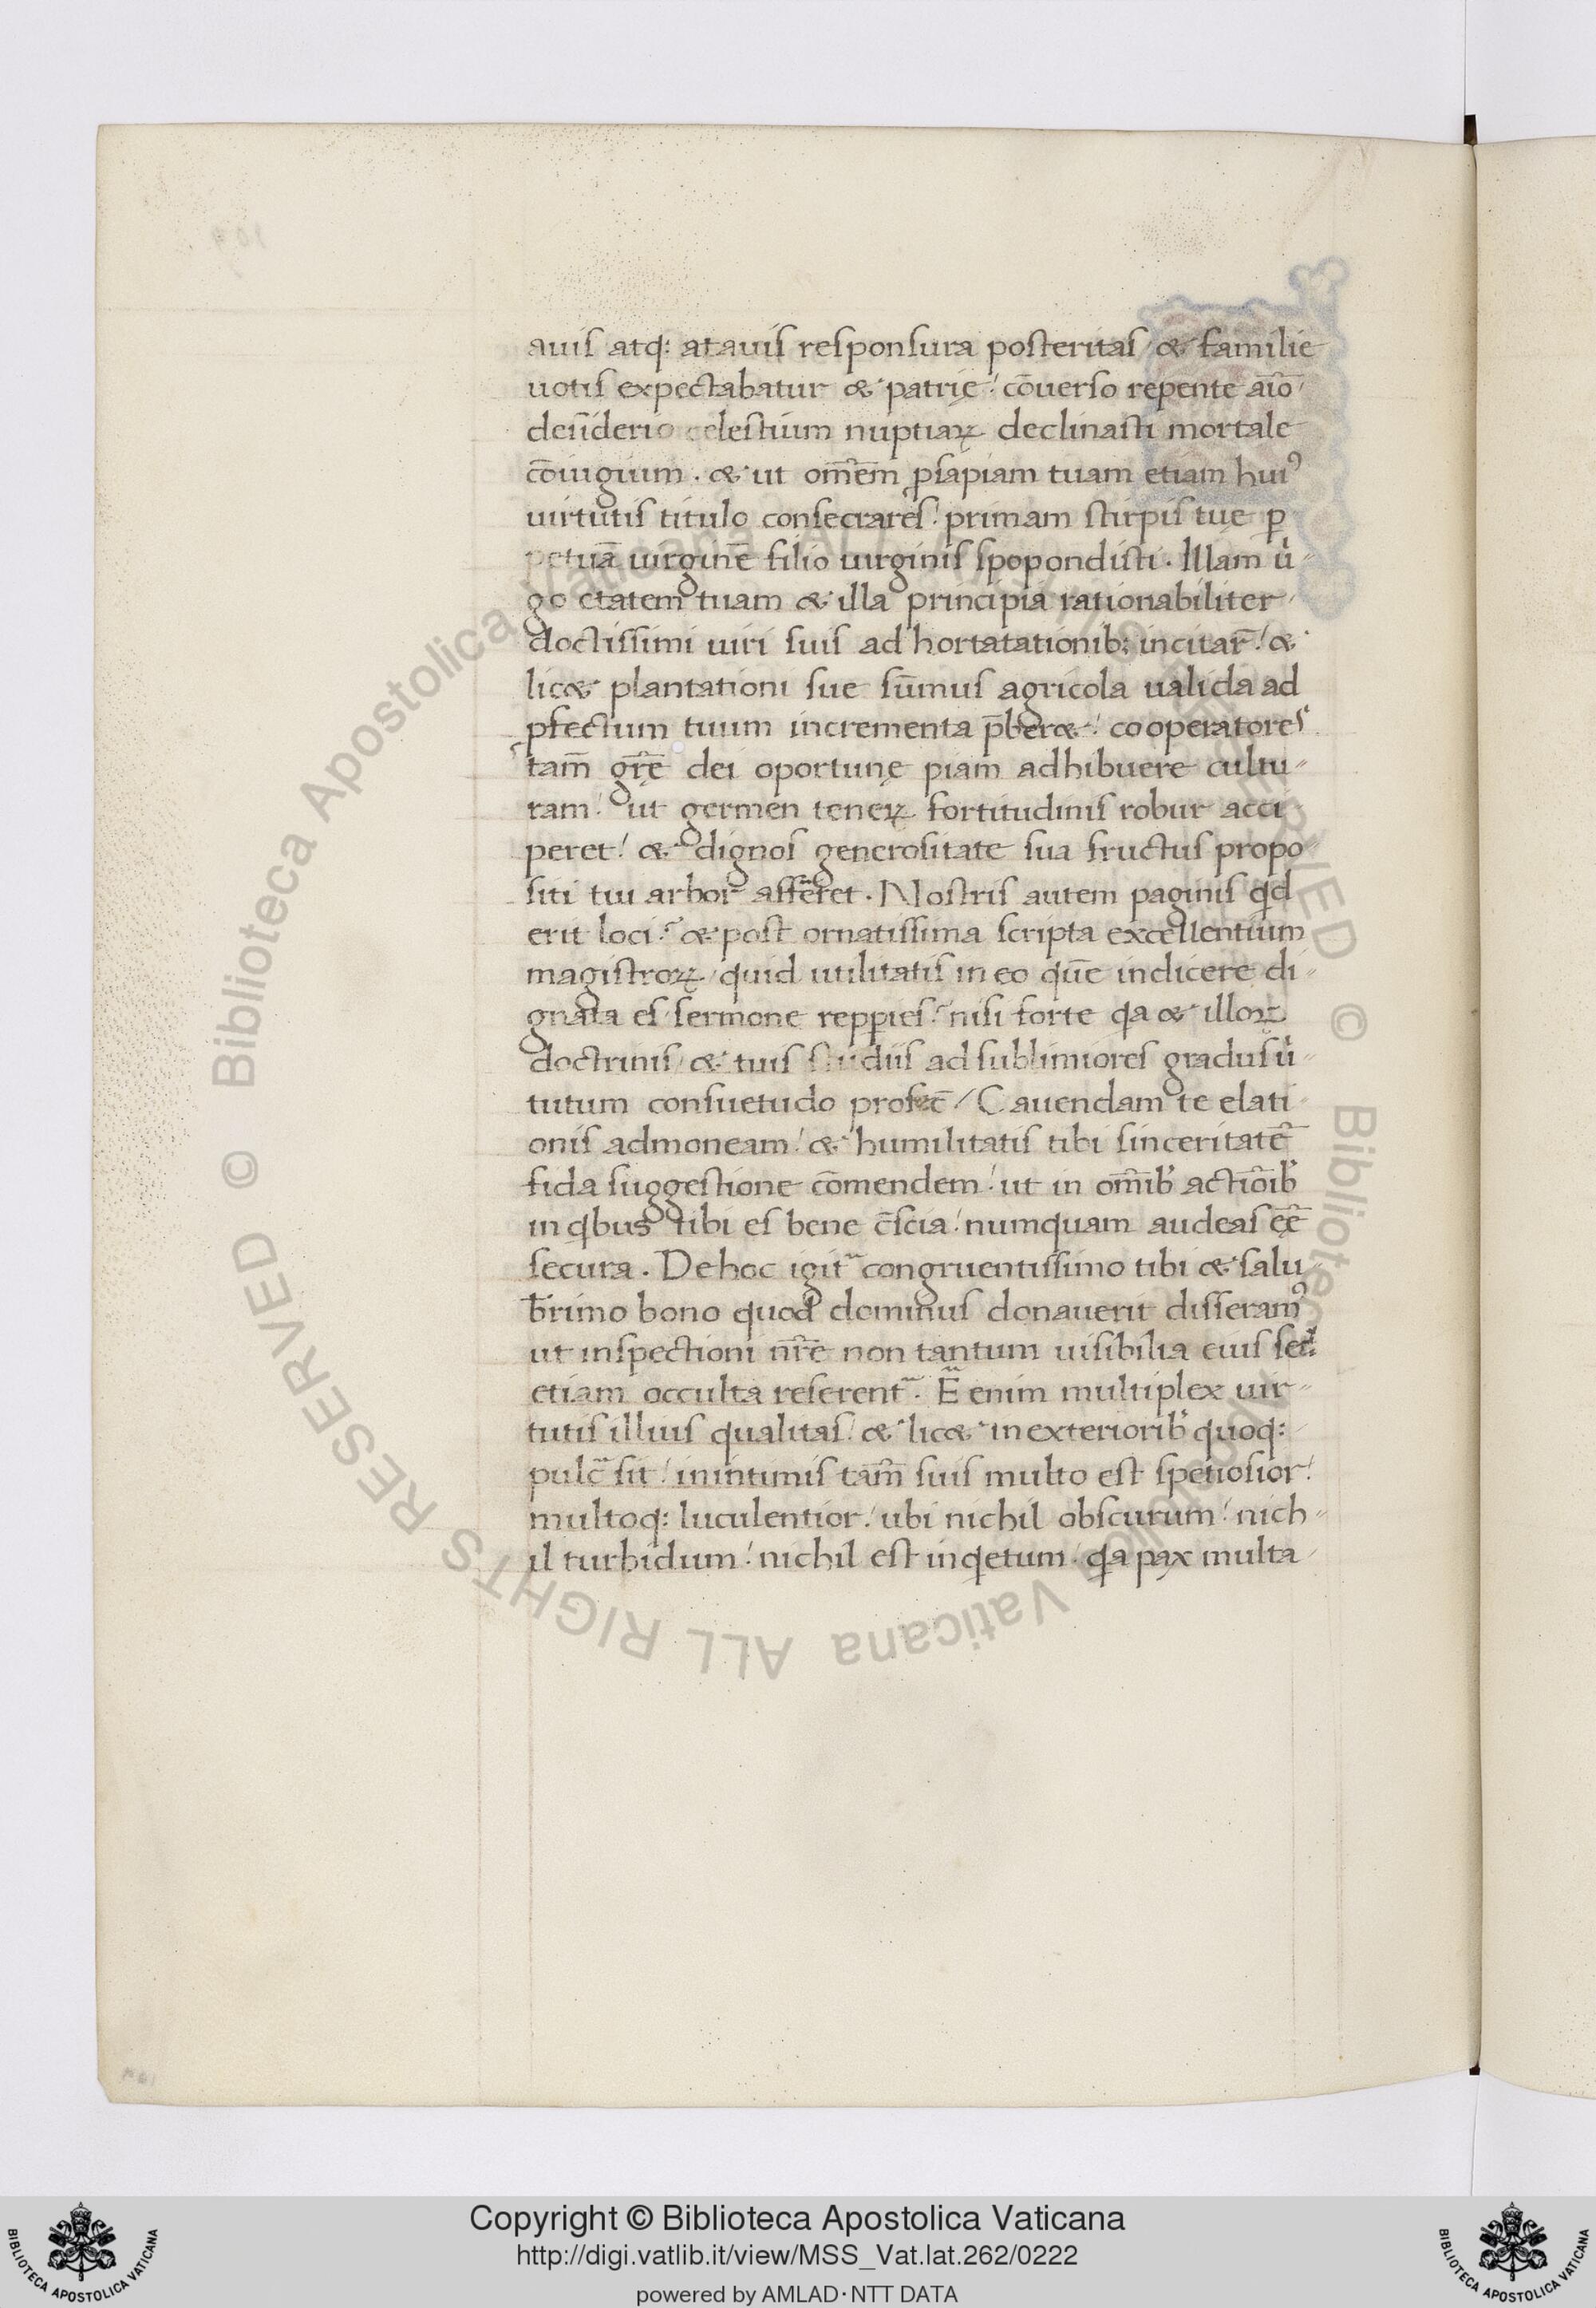 auis atq: atauis responsura posteritas / & familie
uotis expectabatur & patrię! cōuerso repente aīo
desiderio celestium nuptiaꝝ declinasti mortale
cōiugium . & ut om̄em ꝓsapiam tuam etiam huiꝰ
uirtutis titulo consecrares! primam stirpis tue ꝑ
petuā uirginē filio uirginis spopondisti . Illam u̇
go etatem tuam & illa principia rationabiliter
doctissimi uiri suis ad hortatationib: incitar̄! &
lic& plantationi sue sūmus agricola ualida ad
ꝓfectum tuum incrementa p̄ber&! cooperatores
tam̄ gr̄ę dei oportunę piam adhibuere cultu-
ram! ut germen teneꝝ fortitudinis robur acci
peret! & dignos generositate sua fructus propo
siti tui arbor afferret . Nostris autem paginis qd
erit loci? & post ornatissima scripta excellentium
magistroꝝ / quid utilitatis in eo quē indicere di-
gnata es sermone repperies? nisi forte qa & illoꝝ
doctrinis / & tuis studiis ad sublimiores gradus u̇-
tutum consuetudo profec̄ / Cauendam te elati
onis admoneam! & humilitatis tibi sinceritatē
fida suggestione cōmendem! ut in om̄ib' actiōib'
in qbus tibi es bene c̄scia! numquam audeas eē
secura . De hoc igit~ congruentissimo tibi & salu
brimo bono quod dominus donauerit disseramꝰ
ut inspectioni nr̄e non tantum uisibilia eius sed
etiam occulta reserent~. Ē enim multiplex uir-
tutis illius qualitas! & lic& in exteriorib' quoq:
pulc~ sit! in intimis tam̄ suis multo est spetiosior!
multoq: luculentior! ubi nichil obscurum! nich-
il turbidum! nichil est inqetum . qa pax multa
Copyright © Biblioteca Apostolica Vaticana
http://digi.vatlib.it/view/MSS_Vat.lat.262/0222
powered by AMLAD·NTT DATA
BIBLIOTECA APOSTOLICA VATICANA
BIBLIOTECA APOSTOLICA VATICANA